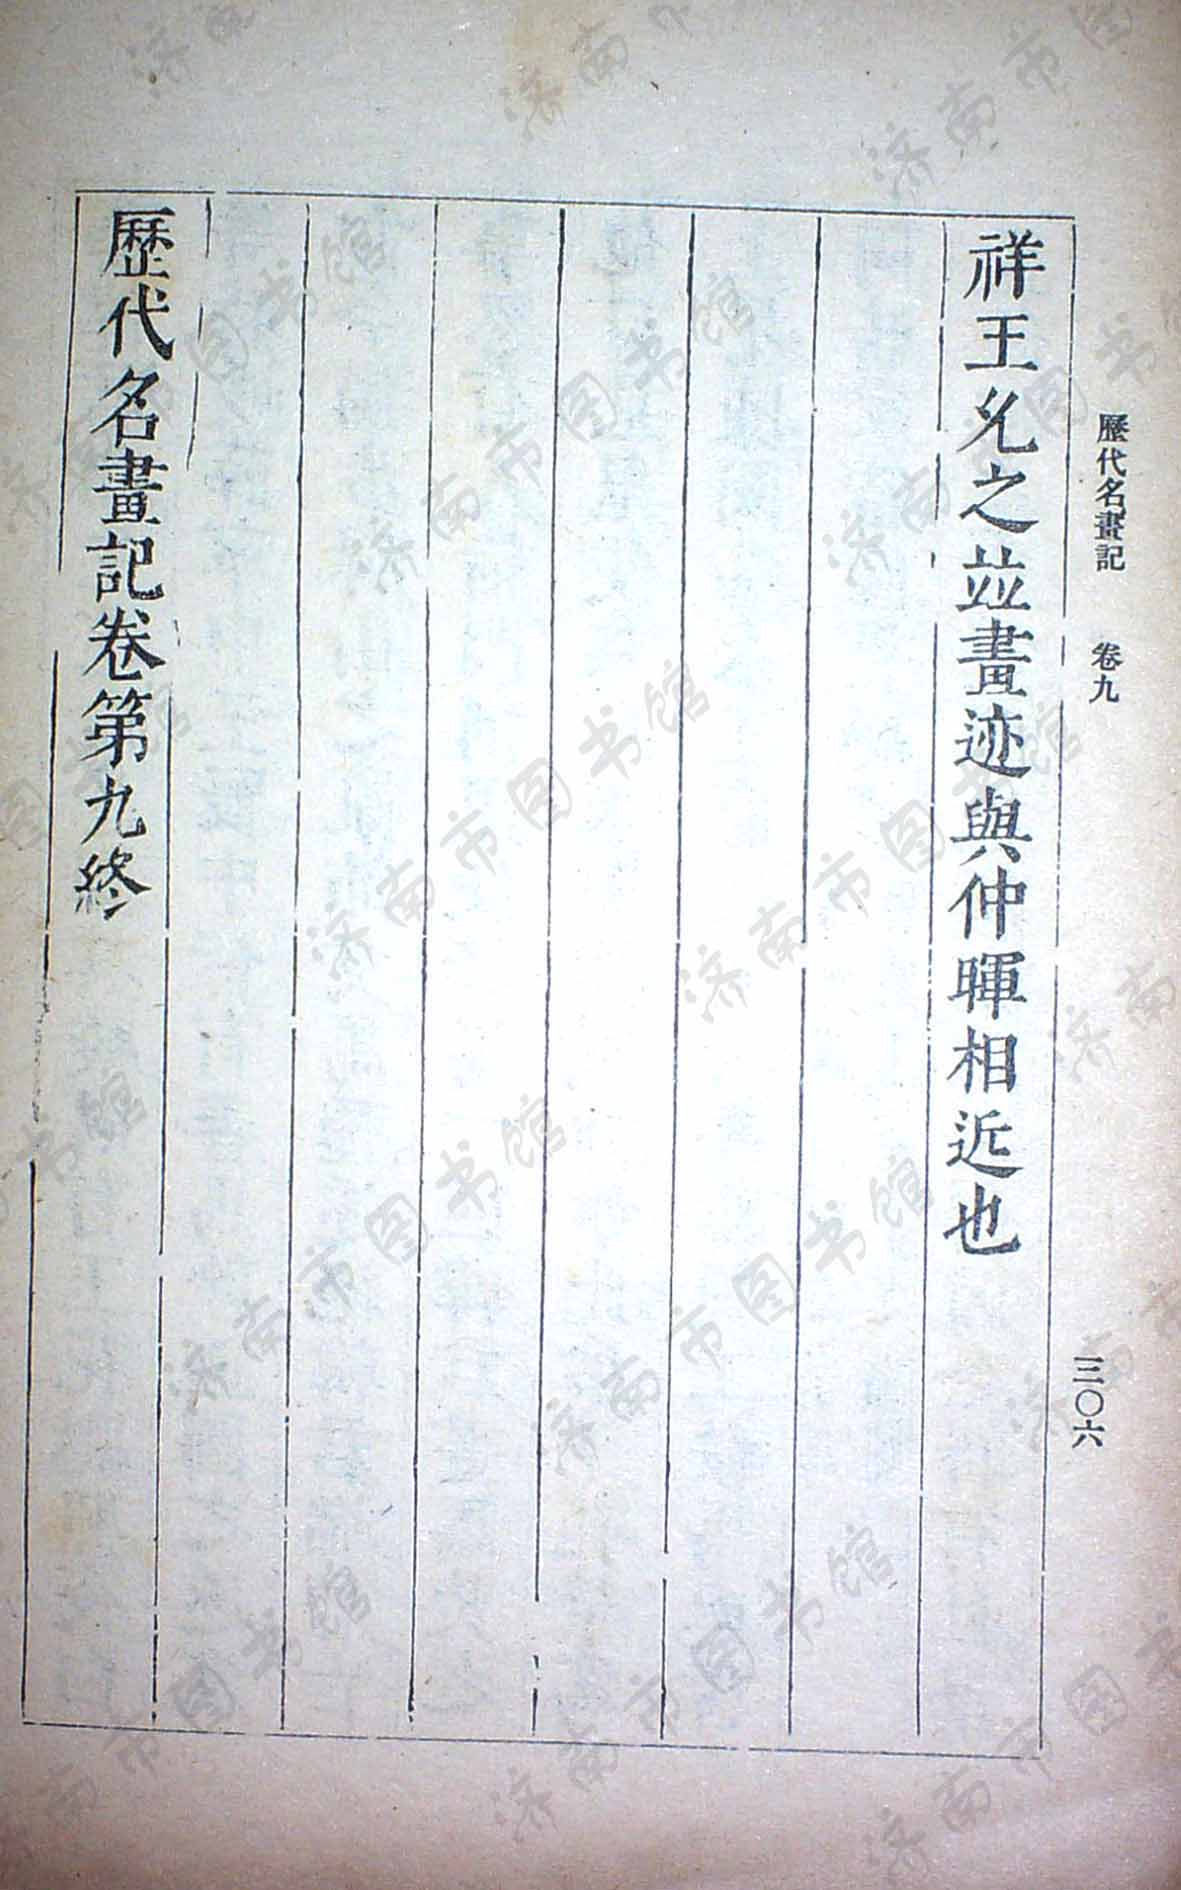 歷代名畫記　卷九　三〇六
祥王允之並畫迹與仲暉相近也
歷代名畫記卷第九終
济南市图书馆